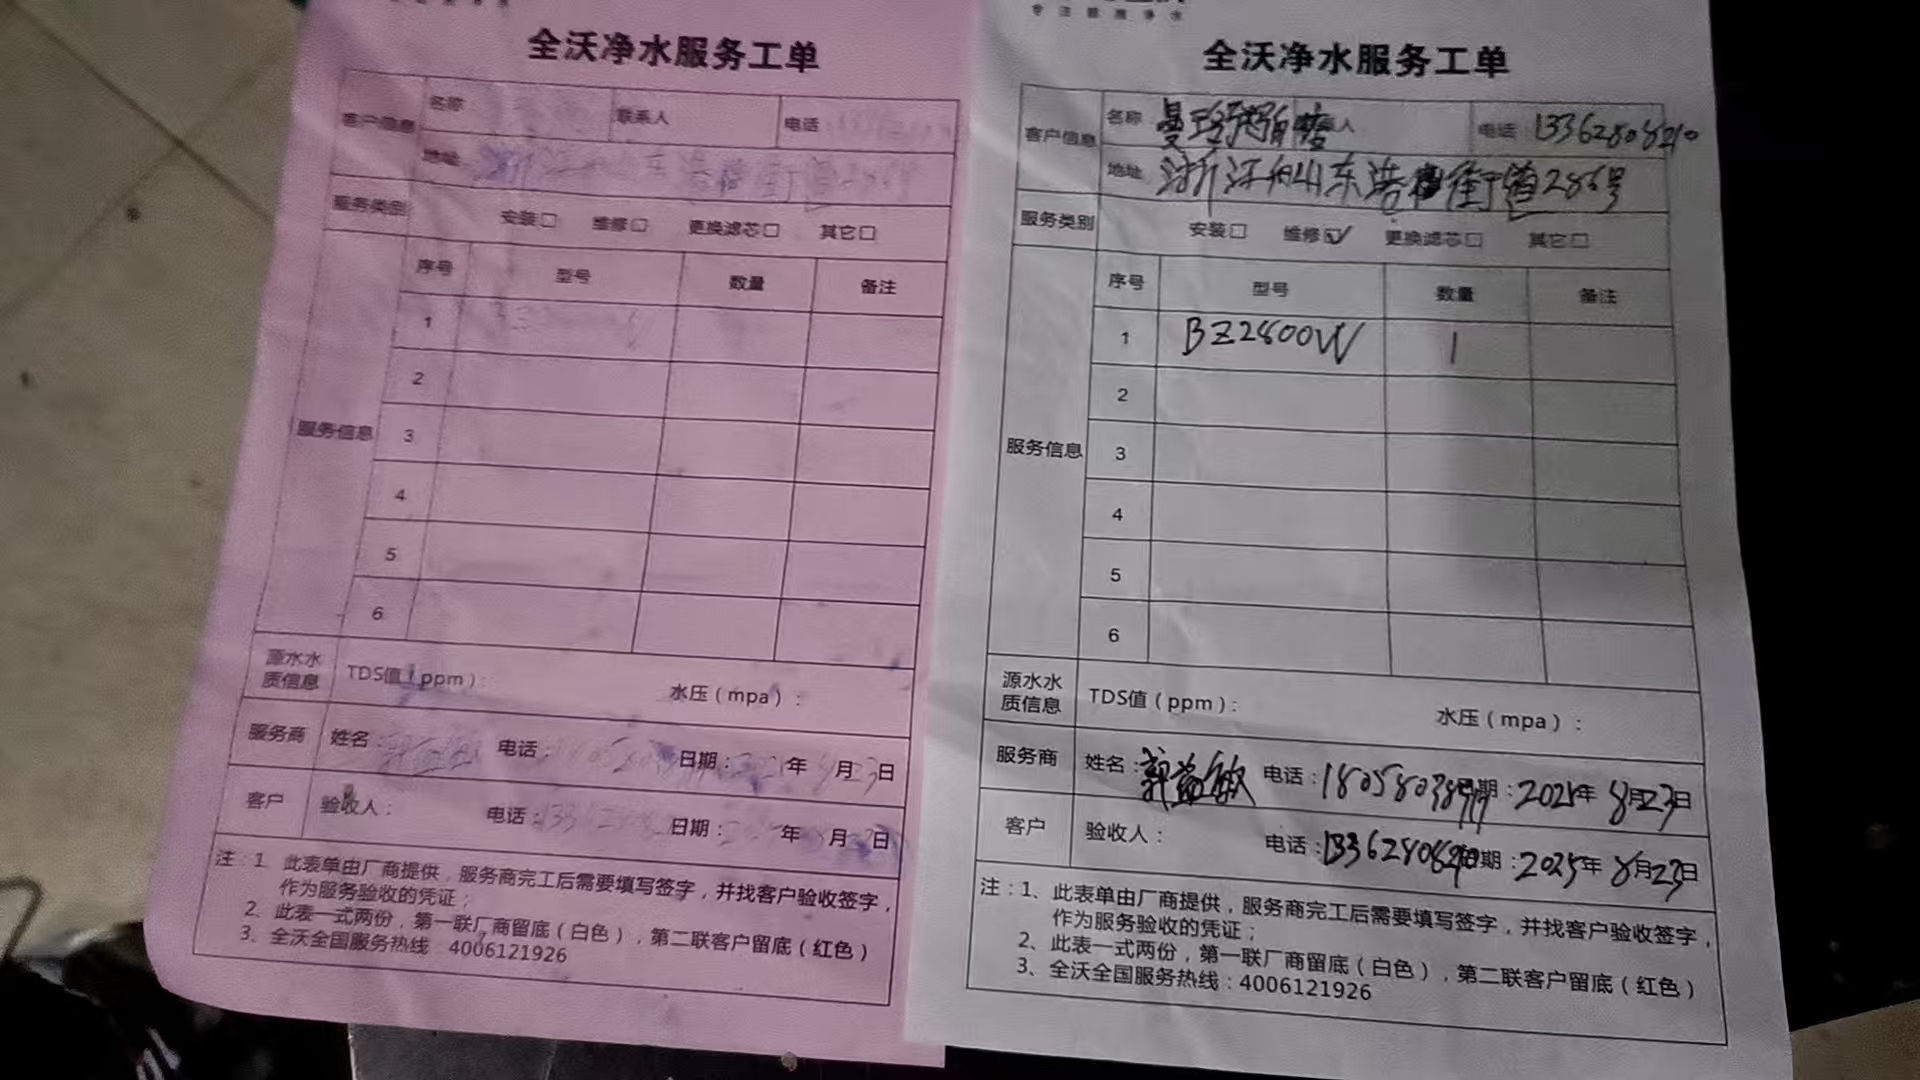 全沃净水服务工单
客户信息 名称 联系人 电话
地址 浙江舟山东港 街道286号
服务类别 安装□ 维修□ 更换滤芯□ 其它□
服务信息 序号 型号 数量 备注
1
2
3
4
5
6
源水水质信息 TDS值(ppm): 水压(mpa):
服务商 姓名: 电话: 日期: 年8月23日
客户 验收人: 电话: 日期: 年8月 日
注:1、此表单由厂商提供,服务商完工后需要填写签字,并找客户验收签字,
作为服务验收的凭证;
2、此表一式两份,第一联厂商留底(白色),第二联客户留底(红色)
3、全沃全国服务热线:4006121926
专注健康净水
全沃净水服务工单
客户信息 名称 人 电话:13362808210
地址 浙江舟山东港 街道286号
服务类别 安装□ 维修☑ 更换滤芯□ 其它□
服务信息 序号 型号 数量 备注
1 BZ2800W 1
2
3
4
5
6
源水水质信息 TDS值(ppm): 水压(mpa):
服务商 姓名:郭益敏 电话: 期:2025年8月23日
客户 验收人: 电话: 期:2025年8月23日
注:1、此表单由厂商提供,服务商完工后需要填写签字,并找客户验收签字,
作为服务验收的凭证;
2、此表一式两份,第一联厂商留底(白色),第二联客户留底(红色)
3、全沃全国服务热线:4006121926